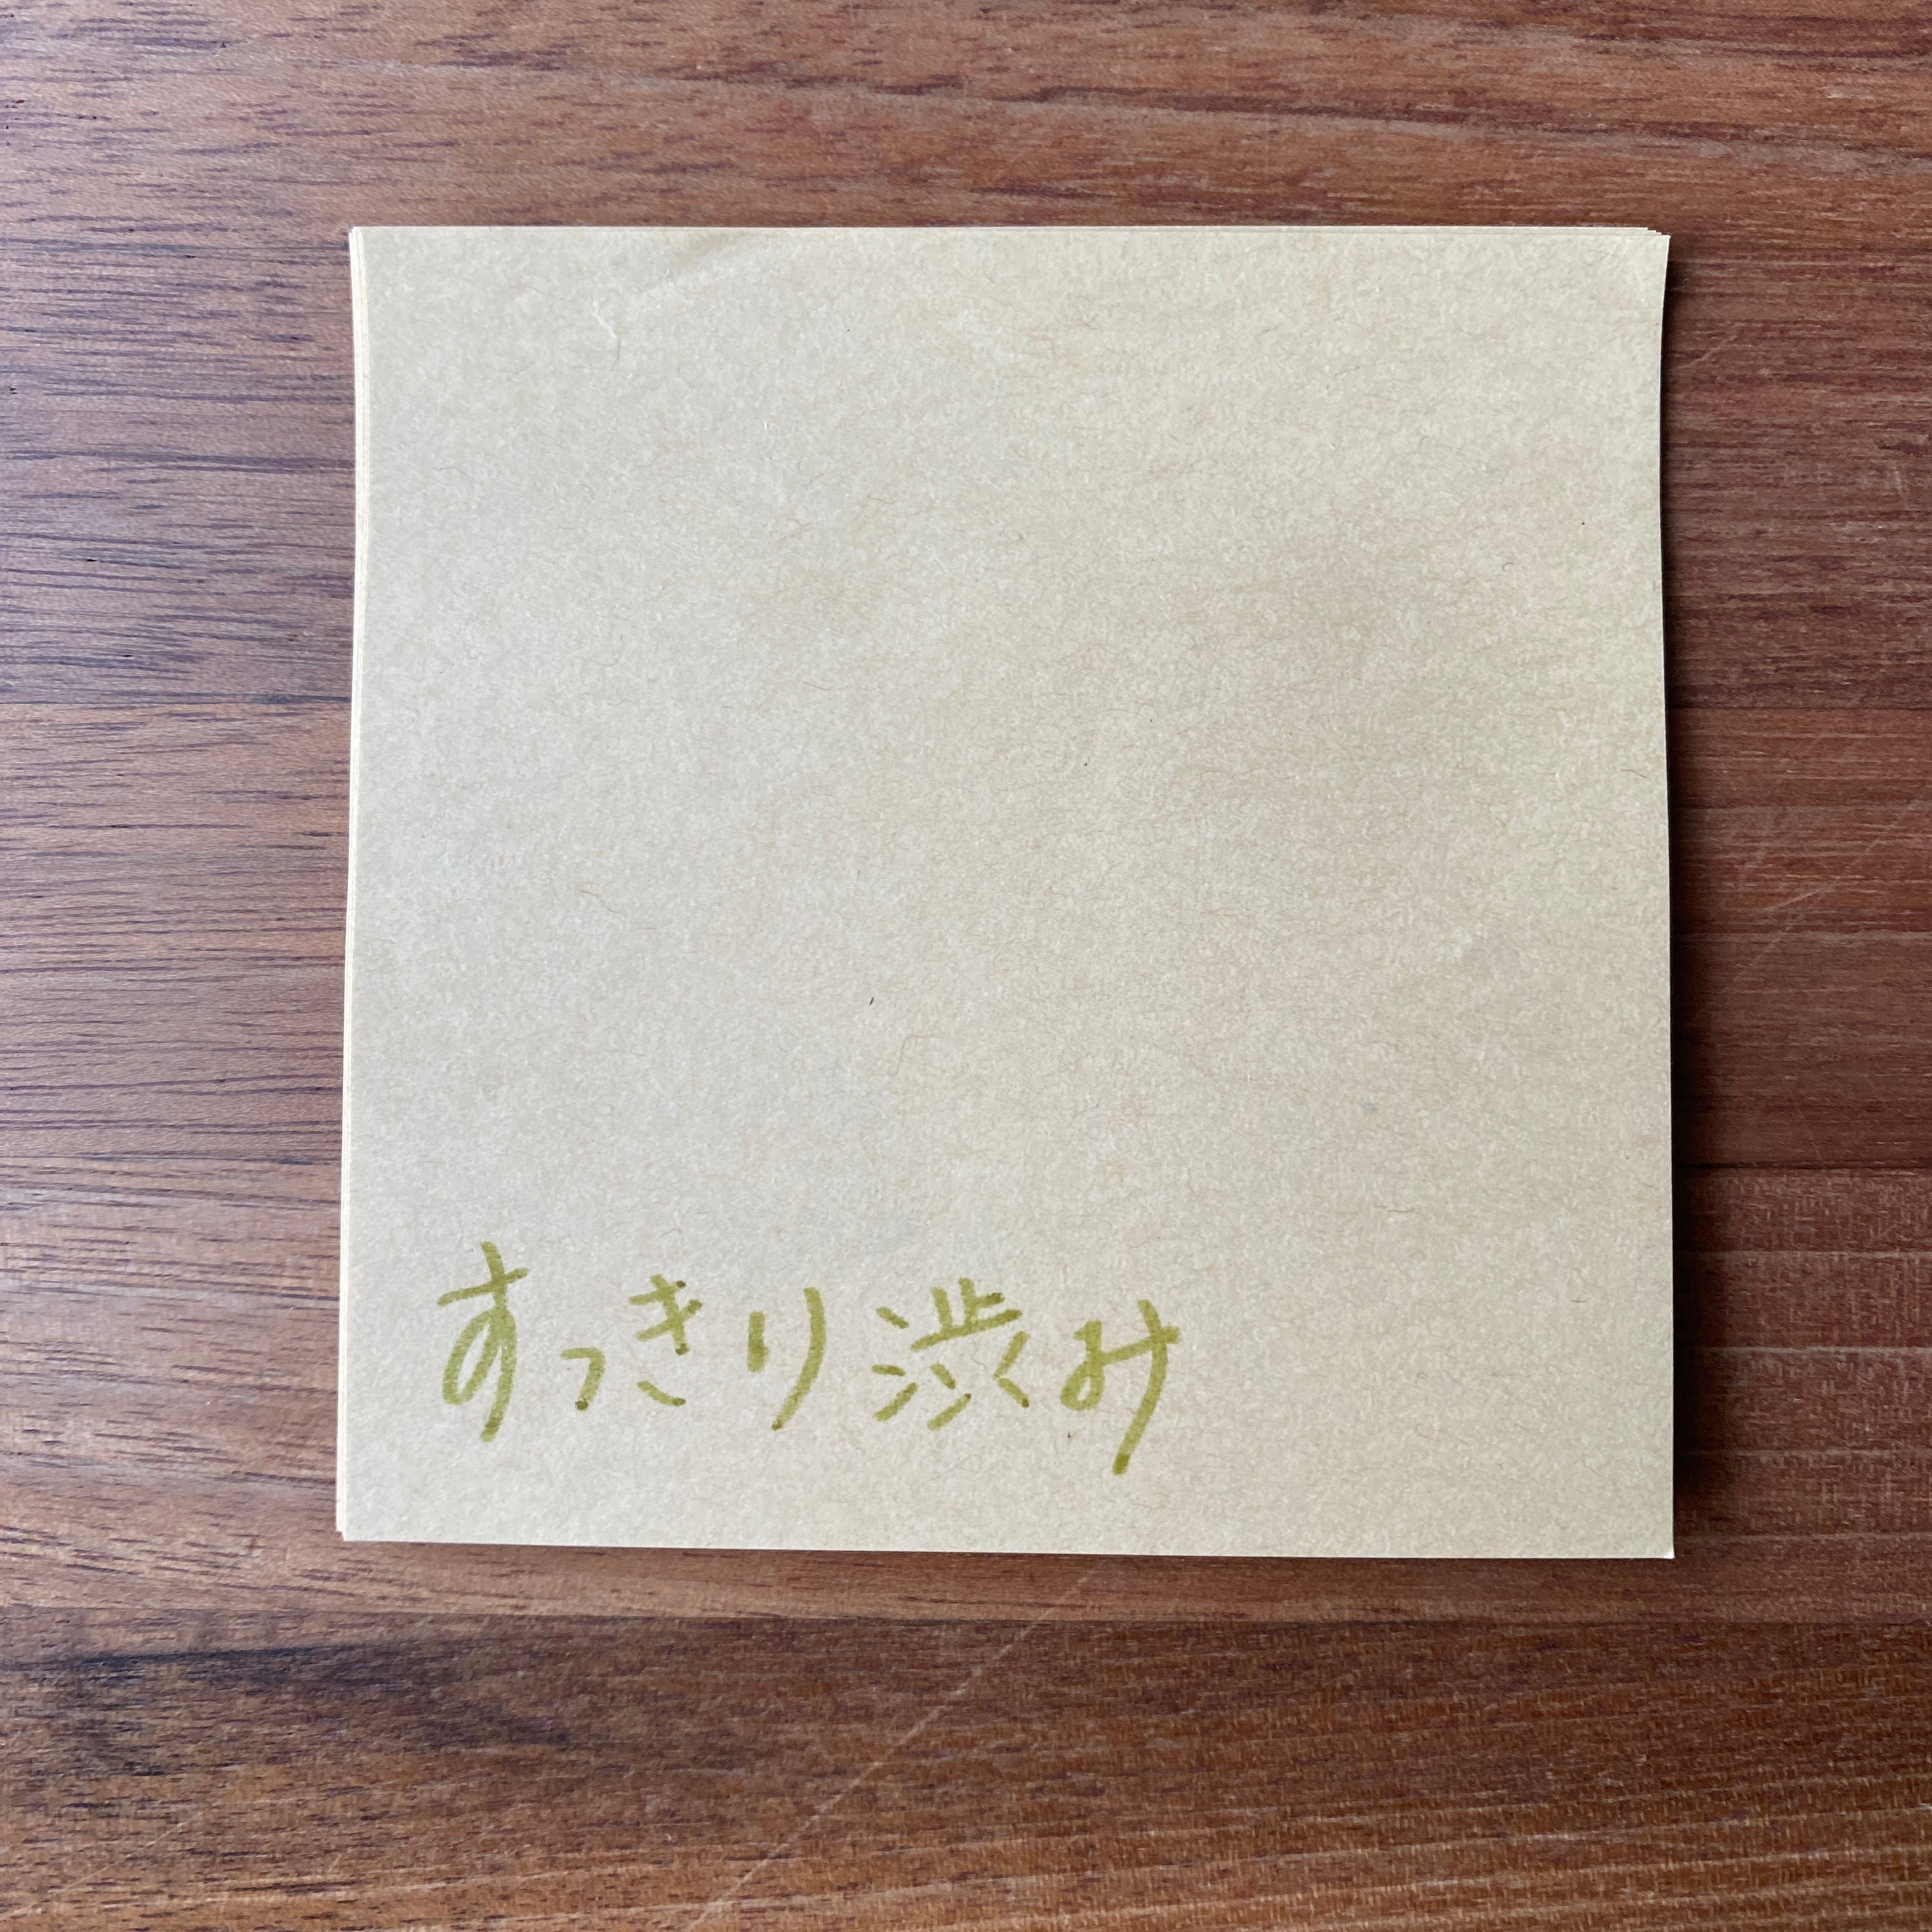 すっきり渋み